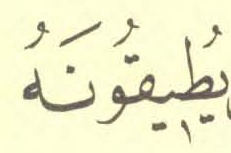 يُطِيقُونَهُ